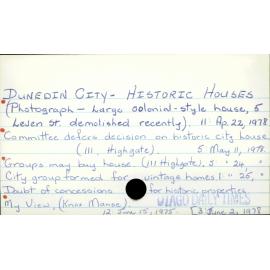 DUNEDIN CITY - HISTORIC HOUSES
(Photograph - Large colonial-style house, 5
Leven St. demolished recently). 11 Ap. 22, 1978
Committee defers decision on historic city house
(111, Highgate). 5 May 11, 1978.
Groups may buy house. (111 Highgate), 5 " 24, "
City group formed for vintage homes 1 " 25, "
Doubt of concessions for historic properties
OTAGO DAILY TIMES
My View, (Knox Manse). 3 June 2, 1978
12 June 15, 1975